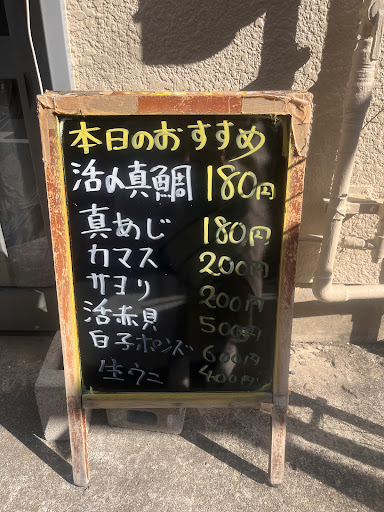 本日のおすすめ
活〆真鯛 180円
真あじ 180円
カマス 200円
サヨリ 200円
活赤貝 500円
白子ポンズ 600円
生ウニ 400円